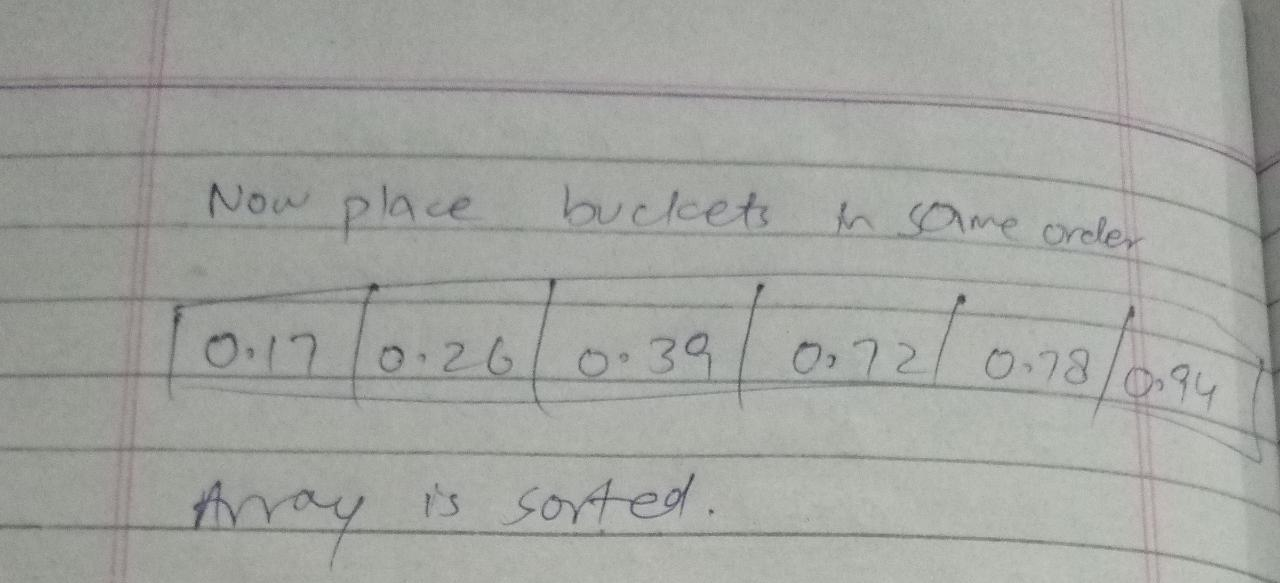 Now place buckets in same order
0.17 0.26 0.39 0.72 0.78 0.94
Array is sorted.